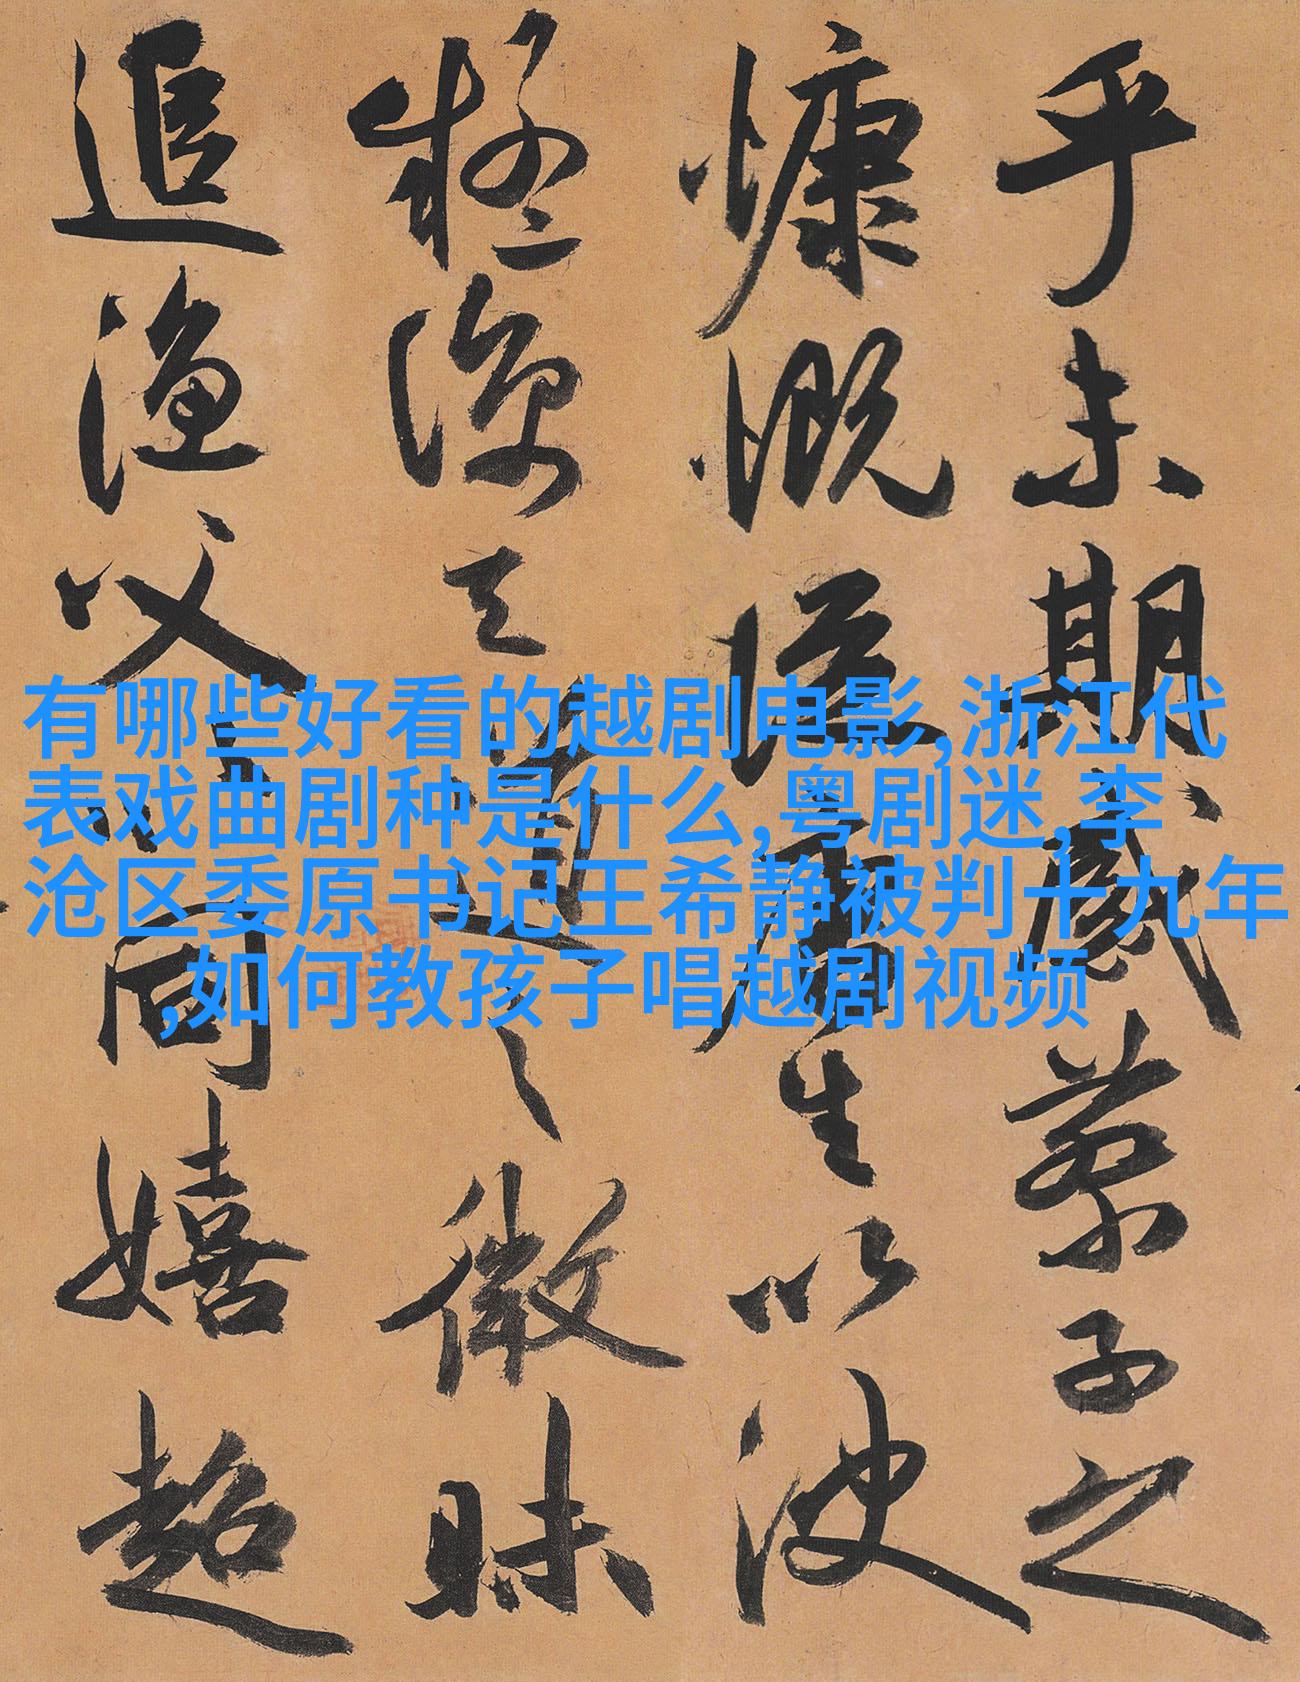 乎未期感蔡子之
慷慨從唐生以決
疑諒天道之微昧
追漁父以同嬉超
有哪些好看的越剧电影,浙江代
表戏曲剧种是什么,粤剧迷,李
沧区委原书记王希静被判十九年
,如何教孩子唱越剧视频